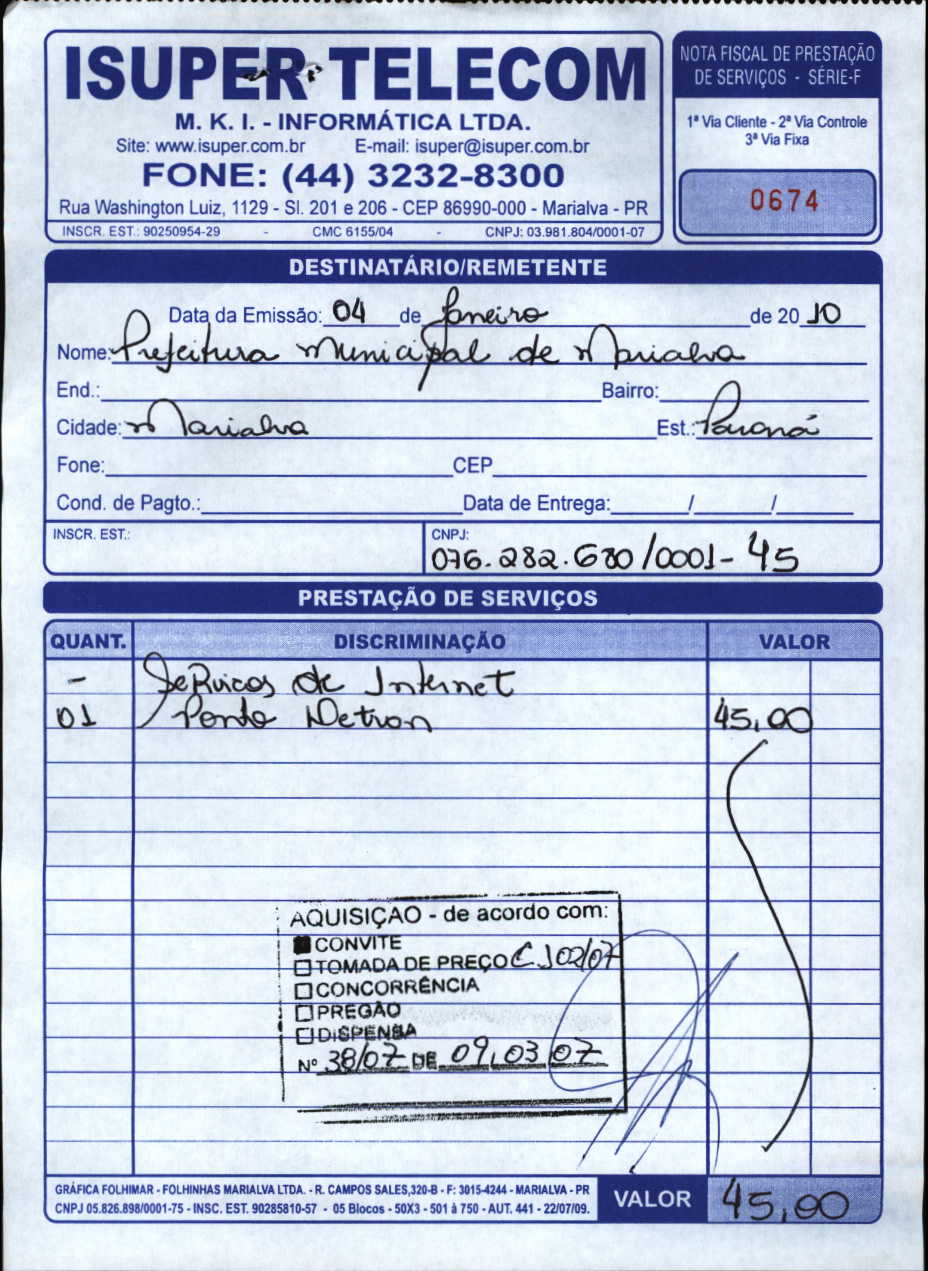 ISUPER TELECOM
M. K. I. - INFORMÁTICA LTDA.
Site: www.isuper.com.br E-mail: isuper@isuper.com.br
FONE: (44) 3232-8300
Rua Washington Luiz, 1129 - Sl. 201 e 206 - CEP 86990-000 - Marialva - PR
INSCR. EST.: 90250954-29 - CMC 6155/04 - CNPJ: 03.981.804/0001-07
NOTA FISCAL DE PRESTAÇÃO
DE SERVIÇOS - SÉRIE-F
1ª Via Cliente - 2ª Via Controle
3ª Via Fixa
0674
DESTINATÁRIO/REMETENTE
Data da Emissão: 04 de Janeiro de 20 10
Nome: Prefeitura Municipal de Marialva
End.: Bairro:
Cidade: Marialva Est.: Paraná
Fone: CEP
Cond. de Pagto.: Data de Entrega: / /
INSCR. EST.:
CNPJ:
076.282.680/0001-45
PRESTAÇÃO DE SERVIÇOS
QUANT. DISCRIMINAÇÃO VALOR
- Serviços de Internet
01 Ponto Detran 45,00
AQUISIÇAO - de acordo com:
CONVITE
TOMADA DE PREÇO 02/07
CONCORRÊNCIA
PREGÃO
DISPENSA
Nº 38/07 DE 09,03,07
GRÁFICA FOLHIMAR - FOLHINHAS MARIALVA LTDA. - R. CAMPOS SALES,320-B - F: 3015-4244 - MARIALVA - PR
CNPJ 05.826.898/0001-75 - INSC. EST. 90285810-57 - 05 Blocos - 50X3 - 501 à 750 - AUT. 441 - 22/07/09.
VALOR 45,00